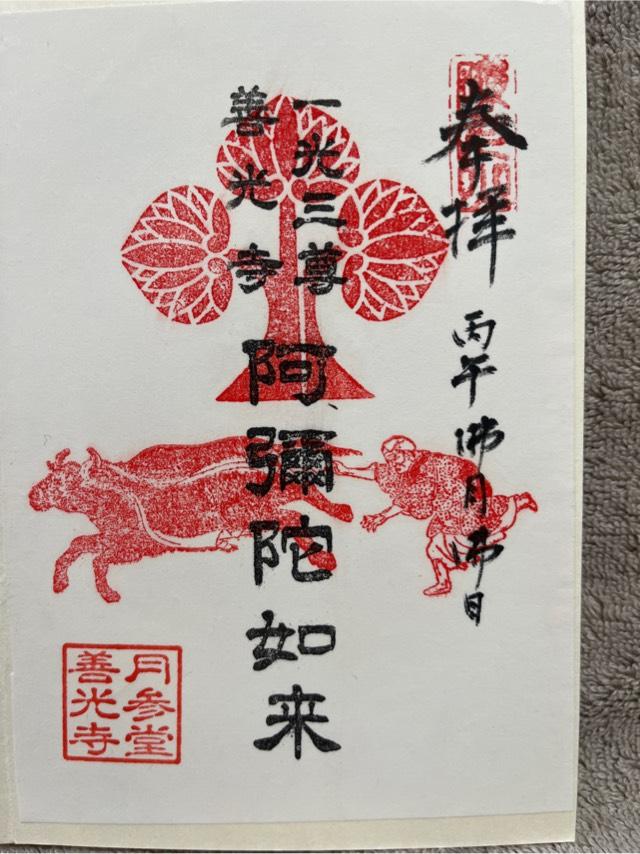 奉拝
丙午佛月佛日
一光三尊
善光寺
阿彌陀如来
月参堂
善光寺